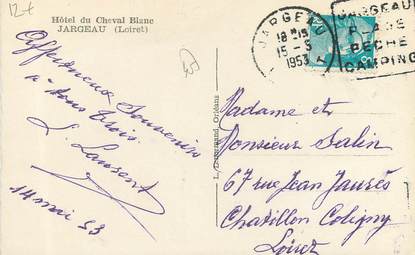 12+
Hôtel du Cheval Blanc
JARGEAU (Loiret)
Affectueux Souvenirs
à tous trois
S. Laurent
14 mai 53
45
JARGEAU
18H15
15-5
1953
JARGEAU
PLAGE
PÊCHE
CAMPING
Orléans
Madame et
Monsieur Salin
67 rue Jean Jaurès
Chatillon Coligny
Loiret